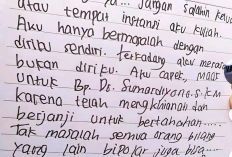 atau tempat instansi aku kuliah.
Aku hanya bermasalah dengan
diriku sendiri. terkadang aku merasa
bukan diriku. Aku capek, maaf
untuk Bp. Ds. Sumardiyono, S.K.M
karena telah mengkhianati dan
berjanji untuk bertahan.....
Tak masalah semua orang bilang
yang lain bipolar juga bisa....